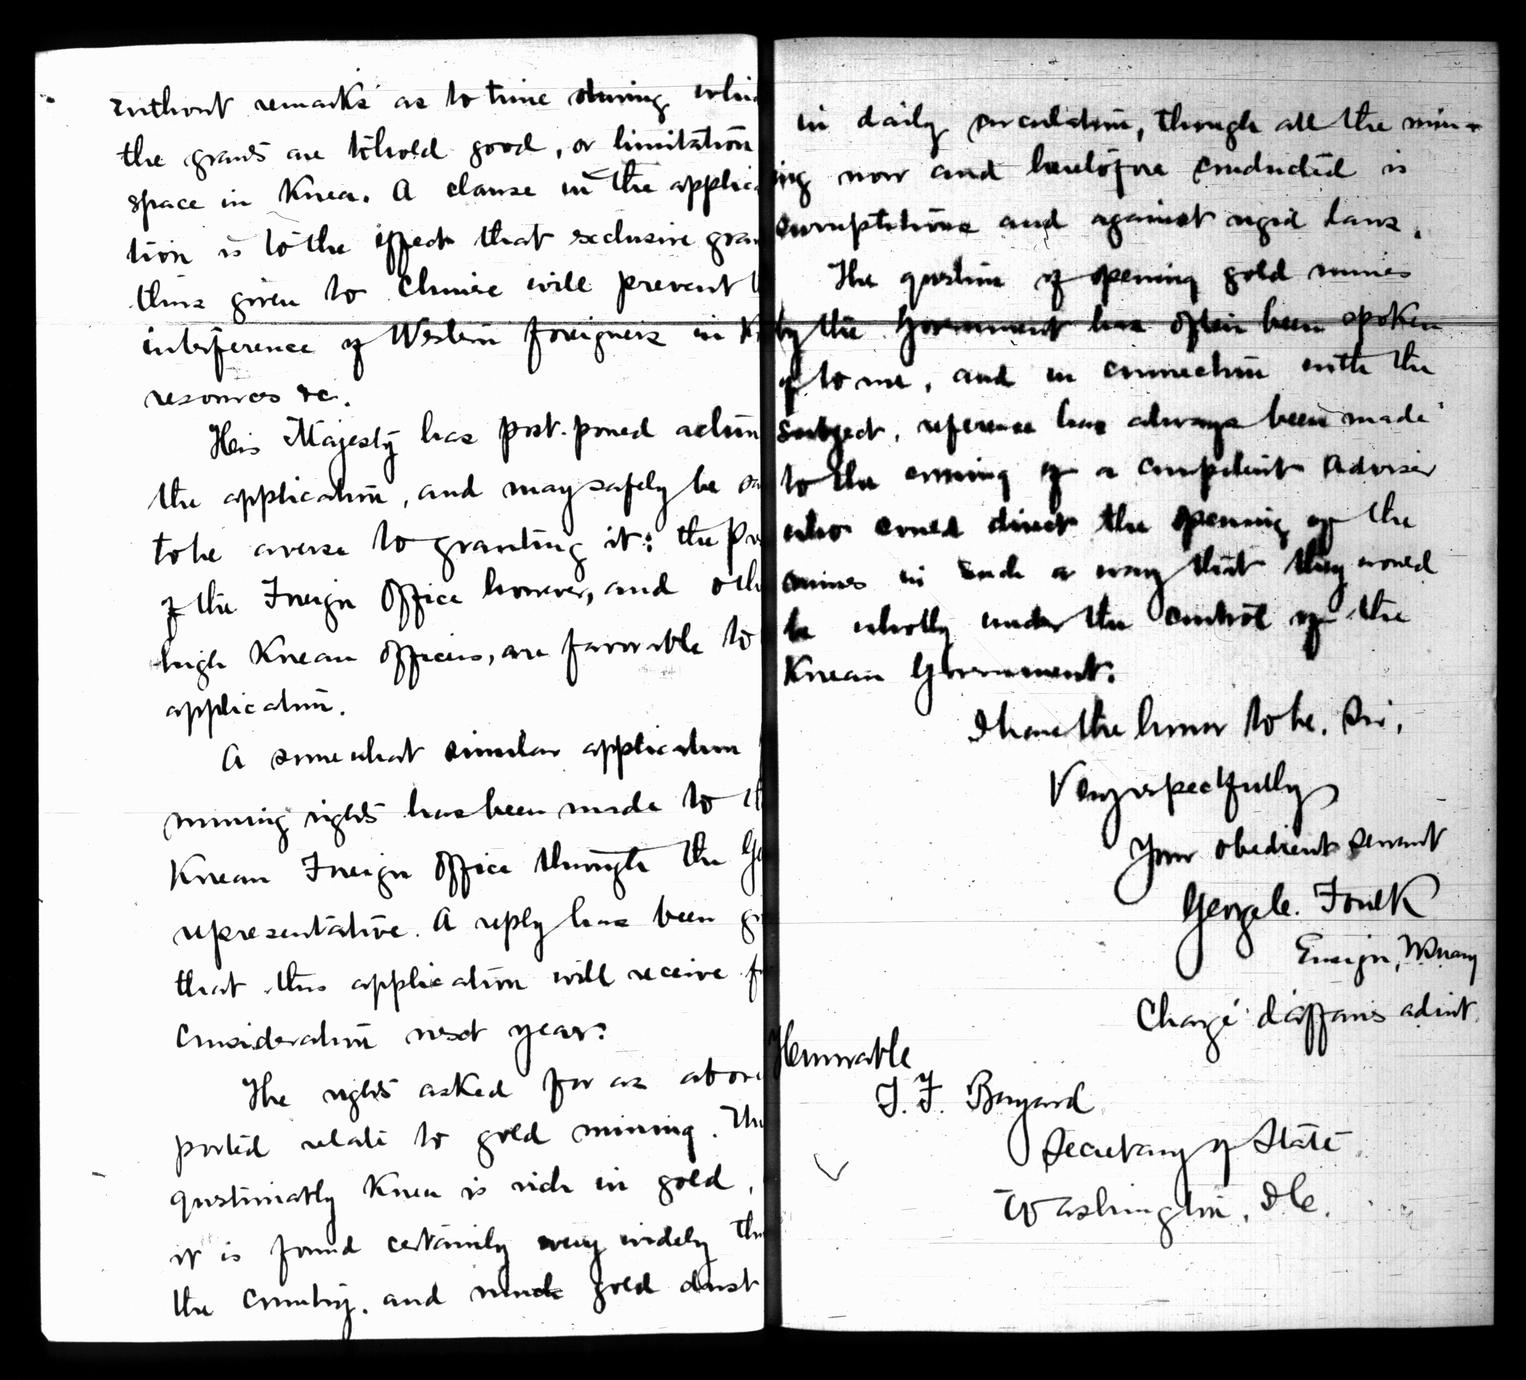 without remarks as to time during whic
the grants are to hold good, or limitation
space in Korea. A clause in the applica
tion is to the effect that exclusive gran
thus given to Chinese will prevent t
interference of Western foreigners in K
resources &c.
His Majesty has post-poned action
the application, and may safely be sa
to be averse to granting it: the Pr
of the Foreign Office however, and oth
high Korean officers, are favorable to
application.
A somewhat similar application f
mining rights has been made to th
Korean Foreign Office through the Ge
representative. A reply has been gi
that this application will receive f
consideration next year.
The rights asked for as above
ported relate to gold mining. Un
questionably Korea is rich in gold,
it is found certainly very widely th
the country, and much gold dust
in daily circulation, though all the min-
ing now and heretofore conducted is
surreptitious and against rigid laws.
The question of opening gold mines
by the Government has often been spoken
of to me, and in connection with the
subject, reference has always been made
to the coming of a competent Adviser
who could direct the opening of the
mines in such a way that they would
be wholly under the control of the
Korean Government.
I have the honor to be, Sir,
Very respectfully
Your obedient servant
George C. Foulk
Ensign, U.S. Navy
Chargé d'affaires ad int.
Honorable
T. F. Bayard
Secretary of State
Washington, D.C.